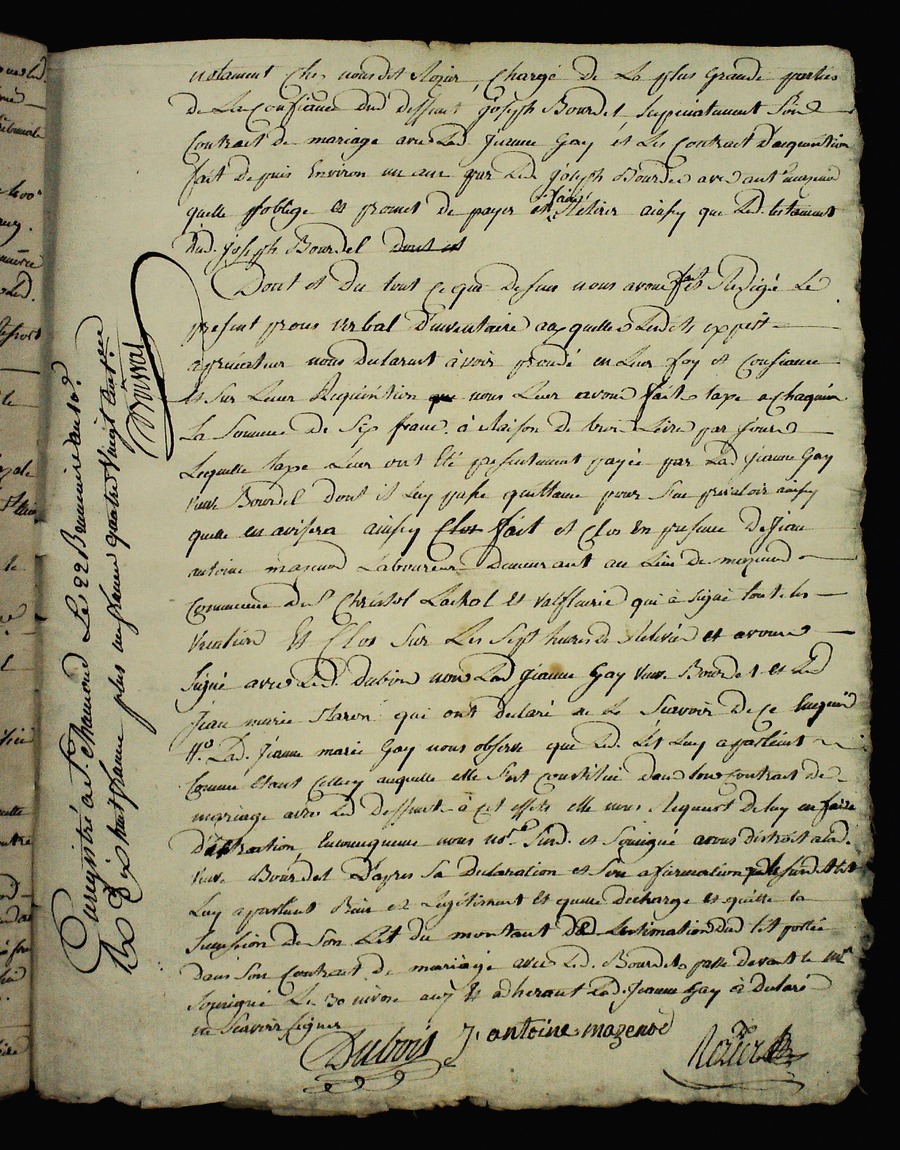 notament Chez nousdt Rozier, Chargé de La plus Grande partie
de La Confiance dud deffunt joseph Bourdel, Son
Contrat de mariage avec Lad. Jeanne Gay et Les Contrat d'acquisition
fait depuis Environ un an par Led. joseph Bourdel avec
quelle s'oblige et promet de payer et faire Retirer ainsy que Led. testament
dud. Joseph Bourdel dont et
Dont et Du tout Ce que Dessus nous avons fait Rédigé Le
present proces verbal d'inventaire Lesdits expert
apréciateur nous declarent avoir procedé en Leur foy et Confiance
et Sur Leur Requisition que nous Leur avons fait taxe a chaquun
La Somme de Six franc. à Raison de trois Livre par jours
Lequelle taxe Leur ont Eté presentement payée par Lad Jeanne Gay
veuve Bourdel dont il Luy passe quittance pour S'en prevaloir ainsy
quelle en avisera ainsy Clos fait et Clos En presence De Jean
antoine mazenod Laboureur Demeurant au Lieu de mazenod
Commune de St Christol Lachol Et valflurie qui à Signé toutes les
vacation Et Clos Sur Les Sept heures de Relevée et avons
Signé avec Led. Dubois non Lad Jeanne Gay veuve Bourdel et Led
Jean marie qui ont declaré ne Le Savoir De Ce Enquis
Lad. Jeanne marie Gay nous observe que Led. Lit Luy apartient
Comme Etant Celluy auquelle elle S'est Constitué dans Son Contrat de
mariage avec Led Deffunt à cet effets elle nous Requiert de luy en faire
Distraction, Enconsequence nous nore. Susd. et Sousigné avons distrait alad.
veuve Bourdel D'apres Sa Declaration et Son afirmation
Luy apartient Bien et Légitimement Et quelle decharge et quitte la
Sucession de Son Lit du montant De Lestimation Dud lit portée
dans Son Contrat de mariage avec Led. Bourdel passé devant le nore
Sousigné Le 30 nivose an 7 Et adherant Lad. Jeanne Gay à Declaré
ne Savoir Signer
Dubois J. antoine mazenod Rozier
Enregistré à St Chamond Le 22 Brumaire an
Dix huit franc plus un franc quatre vingt Cent.